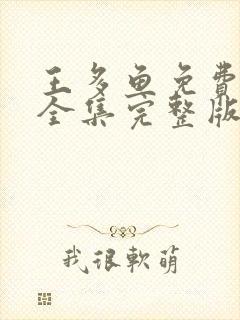 王多鱼免費
全集完整版
我很軟萌